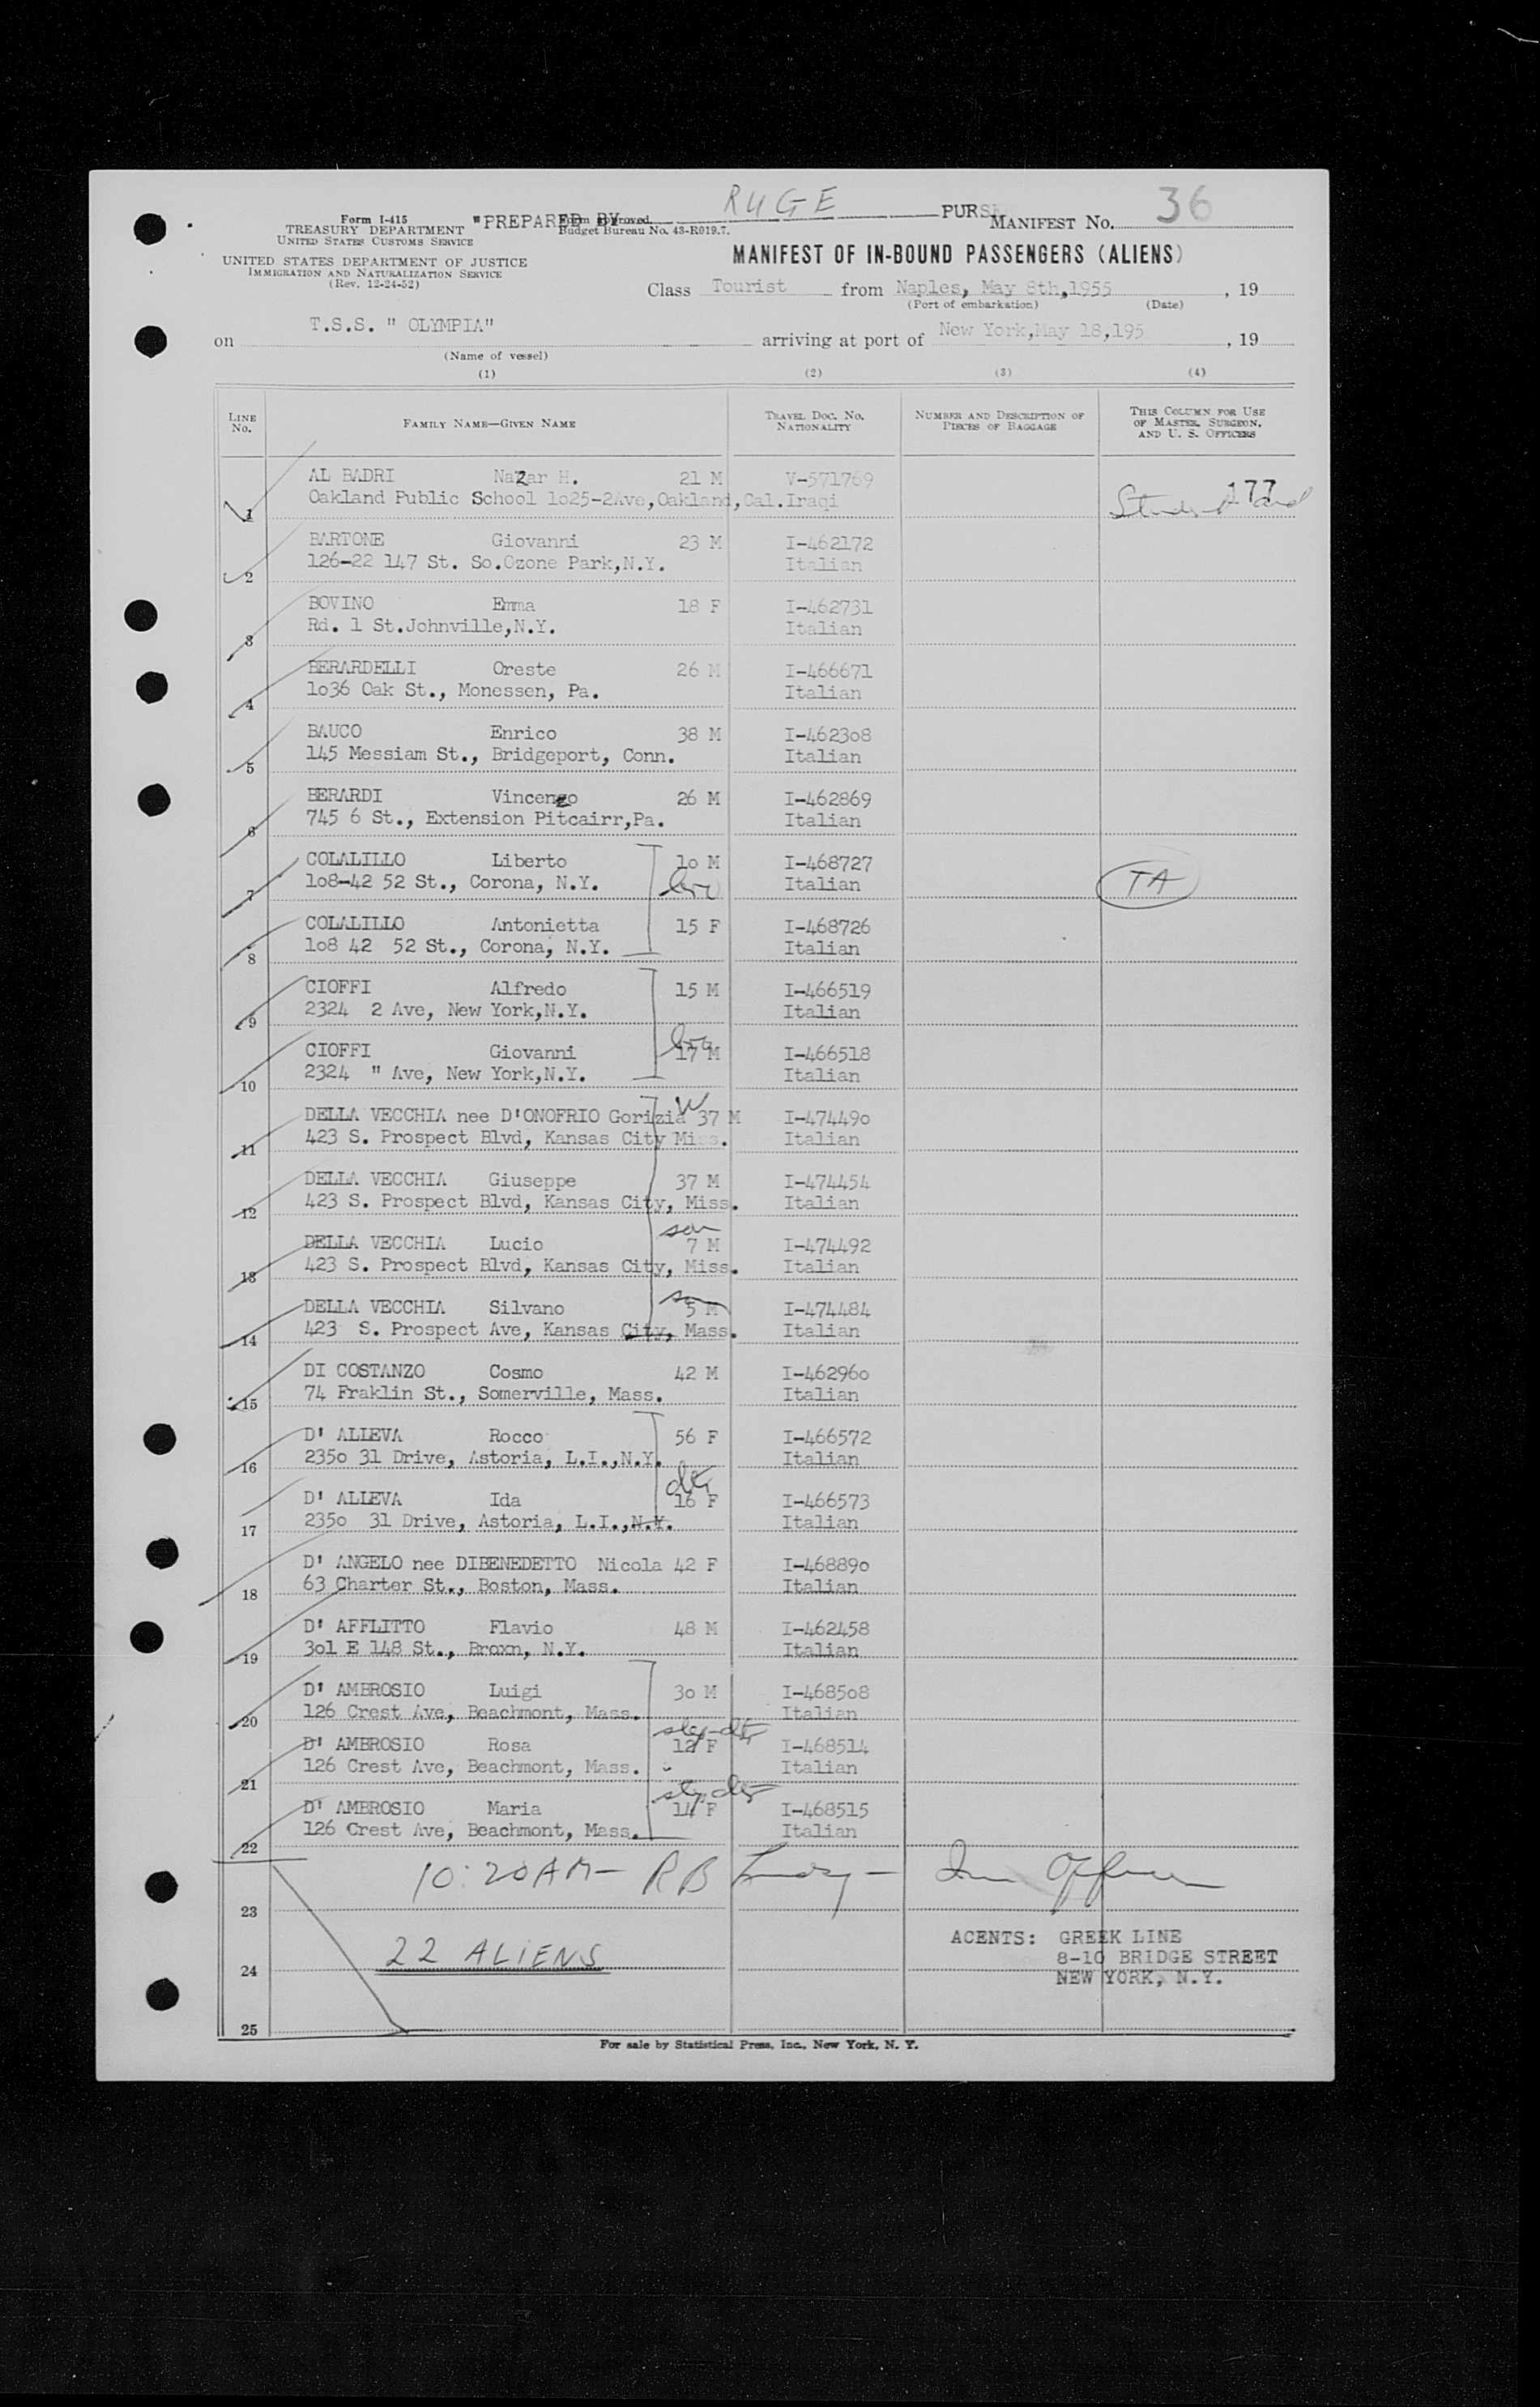 RUGE
36
Form I-415
TREASURY DEPARTMENT
UNITED STATES CUSTOMS SERVICE
"PREPARED BY
Form approved.
Budget Bureau No. 43-R019.7.
MANIFEST NO.
UNITED STATES DEPARTMENT OF JUSTICE
IMMIGRATION AND NATURALIZATION SERVICE
(Rev. 12-24-52)
MANIFEST OF IN-BOUND PASSENGERS (ALIENS)
Class Tourist from Naples, May 8th,1955, 19
(Port of embarkation) (Date)
on T.S.S. " OLYMPIA" arriving at port of New York,May 18,195, 19
(Name of vessel)
(1) (2) (3) (4)
LINE NO. FAMILY NAME—GIVEN NAME TRAVEL DOC. NO. NATIONALITY NUMBER AND DESCRIPTION OF PIECES OF BAGGAGE THIS COLUMN FOR USE OF MASTER, SURGEON, AND U. S. OFFICERS
AL BADRI Nazar H. 21 M V-571769
1 Oakland Public School 1o25-2Ave,Oakland,Cal.Iraqi 177
BARTONE Giovanni 23 M I-462172
2 126-22 147 St. So.Ozone Park,N.Y. Italian
BOVINO Emma 18 F I-462731
3 Rd. 1 St.Johnville,N.Y. Italian
BERARDELLI Oreste 26 M I-466671
4 1o36 Oak St., Monessen, Pa. Italian
BAUCO Enrico 38 M I-4623o8
5 145 Messiam St., Bridgeport, Conn. Italian
BERARDI Vincenzo 26 M I-462869
6 745 6 St., Extension Pitcairr,Pa. Italian
COLALILLO Liberto 1o M I-468727
7 1o8-42 52 St., Corona, N.Y. bro Italian TA
COLALILLO Antonietta 15 F I-468726
8 1o8 42 52 St., Corona, N.Y. Italian
CIOFFI Alfredo 15 M I-466519
9 2324 2 Ave, New York,N.Y. Italian
bro
CIOFFI Giovanni 17 M I-466518
10 2324 " Ave, New York,N.Y. Italian
W
DELLA VECCHIA nee D'ONOFRIO Gorizia 37 M I-47449o
11 423 S. Prospect Blvd, Kansas City Miss. Italian
DELLA VECCHIA Giuseppe 37 M I-474454
12 423 S. Prospect Blvd, Kansas City, Miss. Italian
son
DELLA VECCHIA Lucio 7 M I-474492
13 423 S. Prospect Blvd, Kansas City, Miss. Italian
son
DELLA VECCHIA Silvano 5 M I-474484
14 423 S. Prospect Ave, Kansas City, Mass. Italian
DI COSTANZO Cosmo 42 M I-46296o
15 74 Fraklin St., Somerville, Mass. Italian
D' ALLEVA Rocco 56 F I-466572
16 235o 31 Drive, Astoria, L.I.,N.Y. Italian
dtr
D' ALLEVA Ida 16 F I-466573
17 235o 31 Drive, Astoria, L.I.,N.Y. Italian
D' ANGELO nee DIBENEDETTO Nicola 42 F I-46889o
18 63 Charter St., Boston, Mass. Italian
D' AFFLITTO Flavio 48 M I-462458
19 3o1 E 148 St., Broxn, N.Y. Italian
D' AMBROSIO Luigi 3o M I-4685o8
20 126 Crest Ave, Beachmont, Mass. Italian
step-dtr
D' AMBROSIO Rosa 12 F I-468514
21 126 Crest Ave, Beachmont, Mass. Italian
step dtr
D' AMBROSIO Maria 14 F I-468515
22 126 Crest Ave, Beachmont, Mass. Italian
10:20AM- RB
23
22 ALIENS
24
25
AGENTS: GREEK LINE
8-10 BRIDGE STREET
NEW YORK, N.Y.
For sale by Statistical Press, Inc., New York, N. Y.